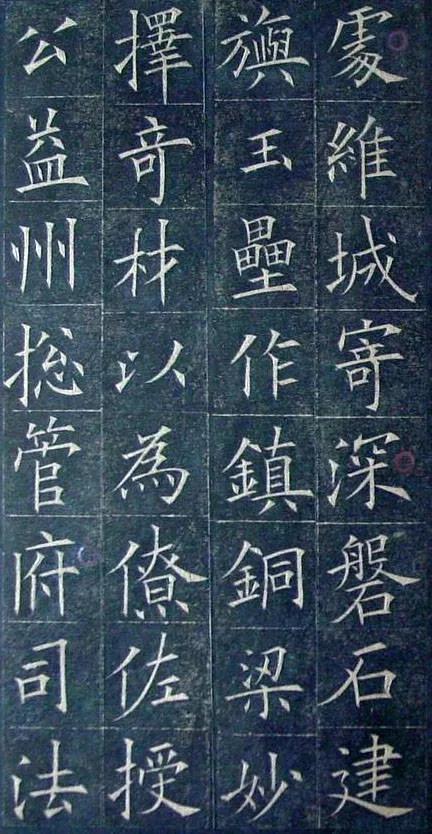 䖍維城寄深磐石建
旟玉壘作鎮銅梁妙
擇竒材以為僚佐授
公益州揔管府司法